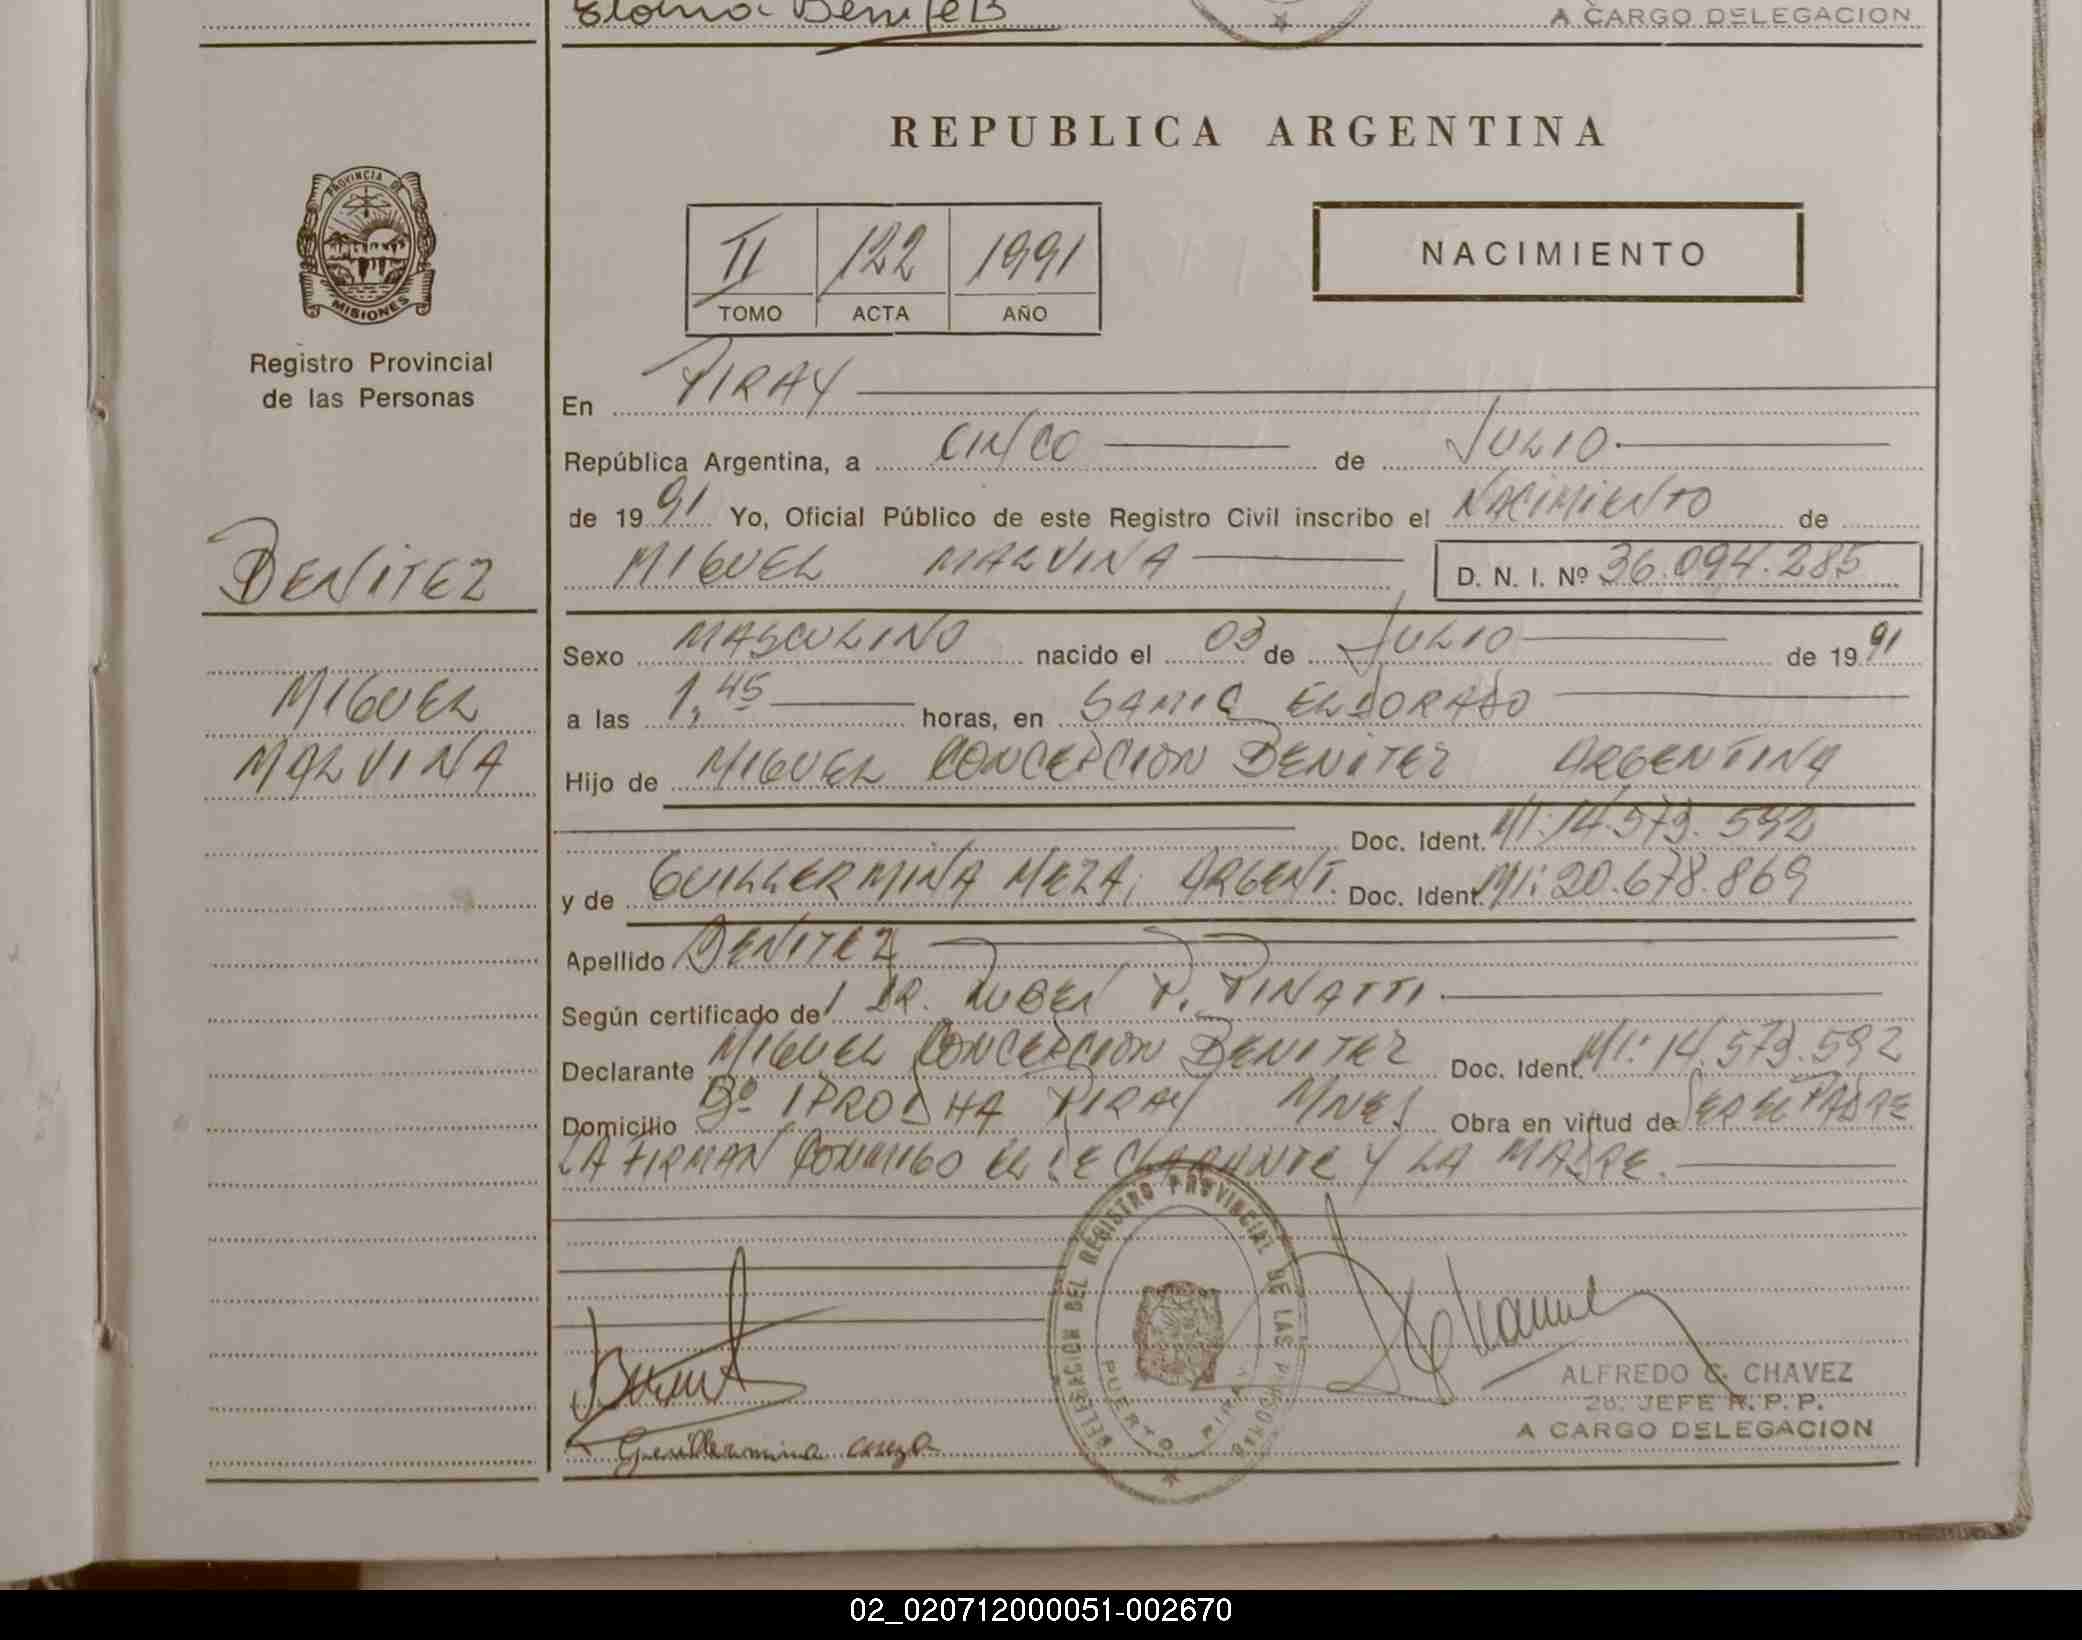 Benitez
A CARGO DELEGACION
REPUBLICA ARGENTINA
PROVINCIA DE
MISIONES
Registro Provincial
de las Personas
II 122 1991
TOMO ACTA AÑO
NACIMIENTO
En PIRAY
República Argentina, a CINCO de JULIO
de 1991 Yo, Oficial Público de este Registro Civil inscribo el NACIMIENTO de
MIGUEL MALVINA D. N. I. Nº 36.094.285
BENITEZ
MIGUEL
MALVINA
Sexo MASCULINO nacido el 03 de JULIO de 1991
a las 1,45 horas, en SAMIC ELDORADO
Hijo de MIGUEL CONCEPCION BENITEZ ARGENTINA
Doc. Ident. MI: 14.573.592
y de GUILLERMINA MEZA, ARGENT. Doc. Ident. MI: 20.678.869
Apellido BENITEZ
Según certificado de DR. RUBEN P. PINATTI
Declarante MIGUEL CONCEPCION BENITEZ Doc. Ident. MI: 14.573.592
Domicilio Bº IPRODHA PIRAY MNES Obra en virtud de SER EL PADRE
LA FIRMAN CONMIGO EL DECLARANTE Y LA MADRE.
DELEGACION DEL REGISTRO PROVINCIAL DE LAS PERSONAS
PUERTO PIRAY
ALFREDO C. CHAVEZ
2º. JEFE R. P. P.
A CARGO DELEGACION
Guillermina
02_020712000051-002670